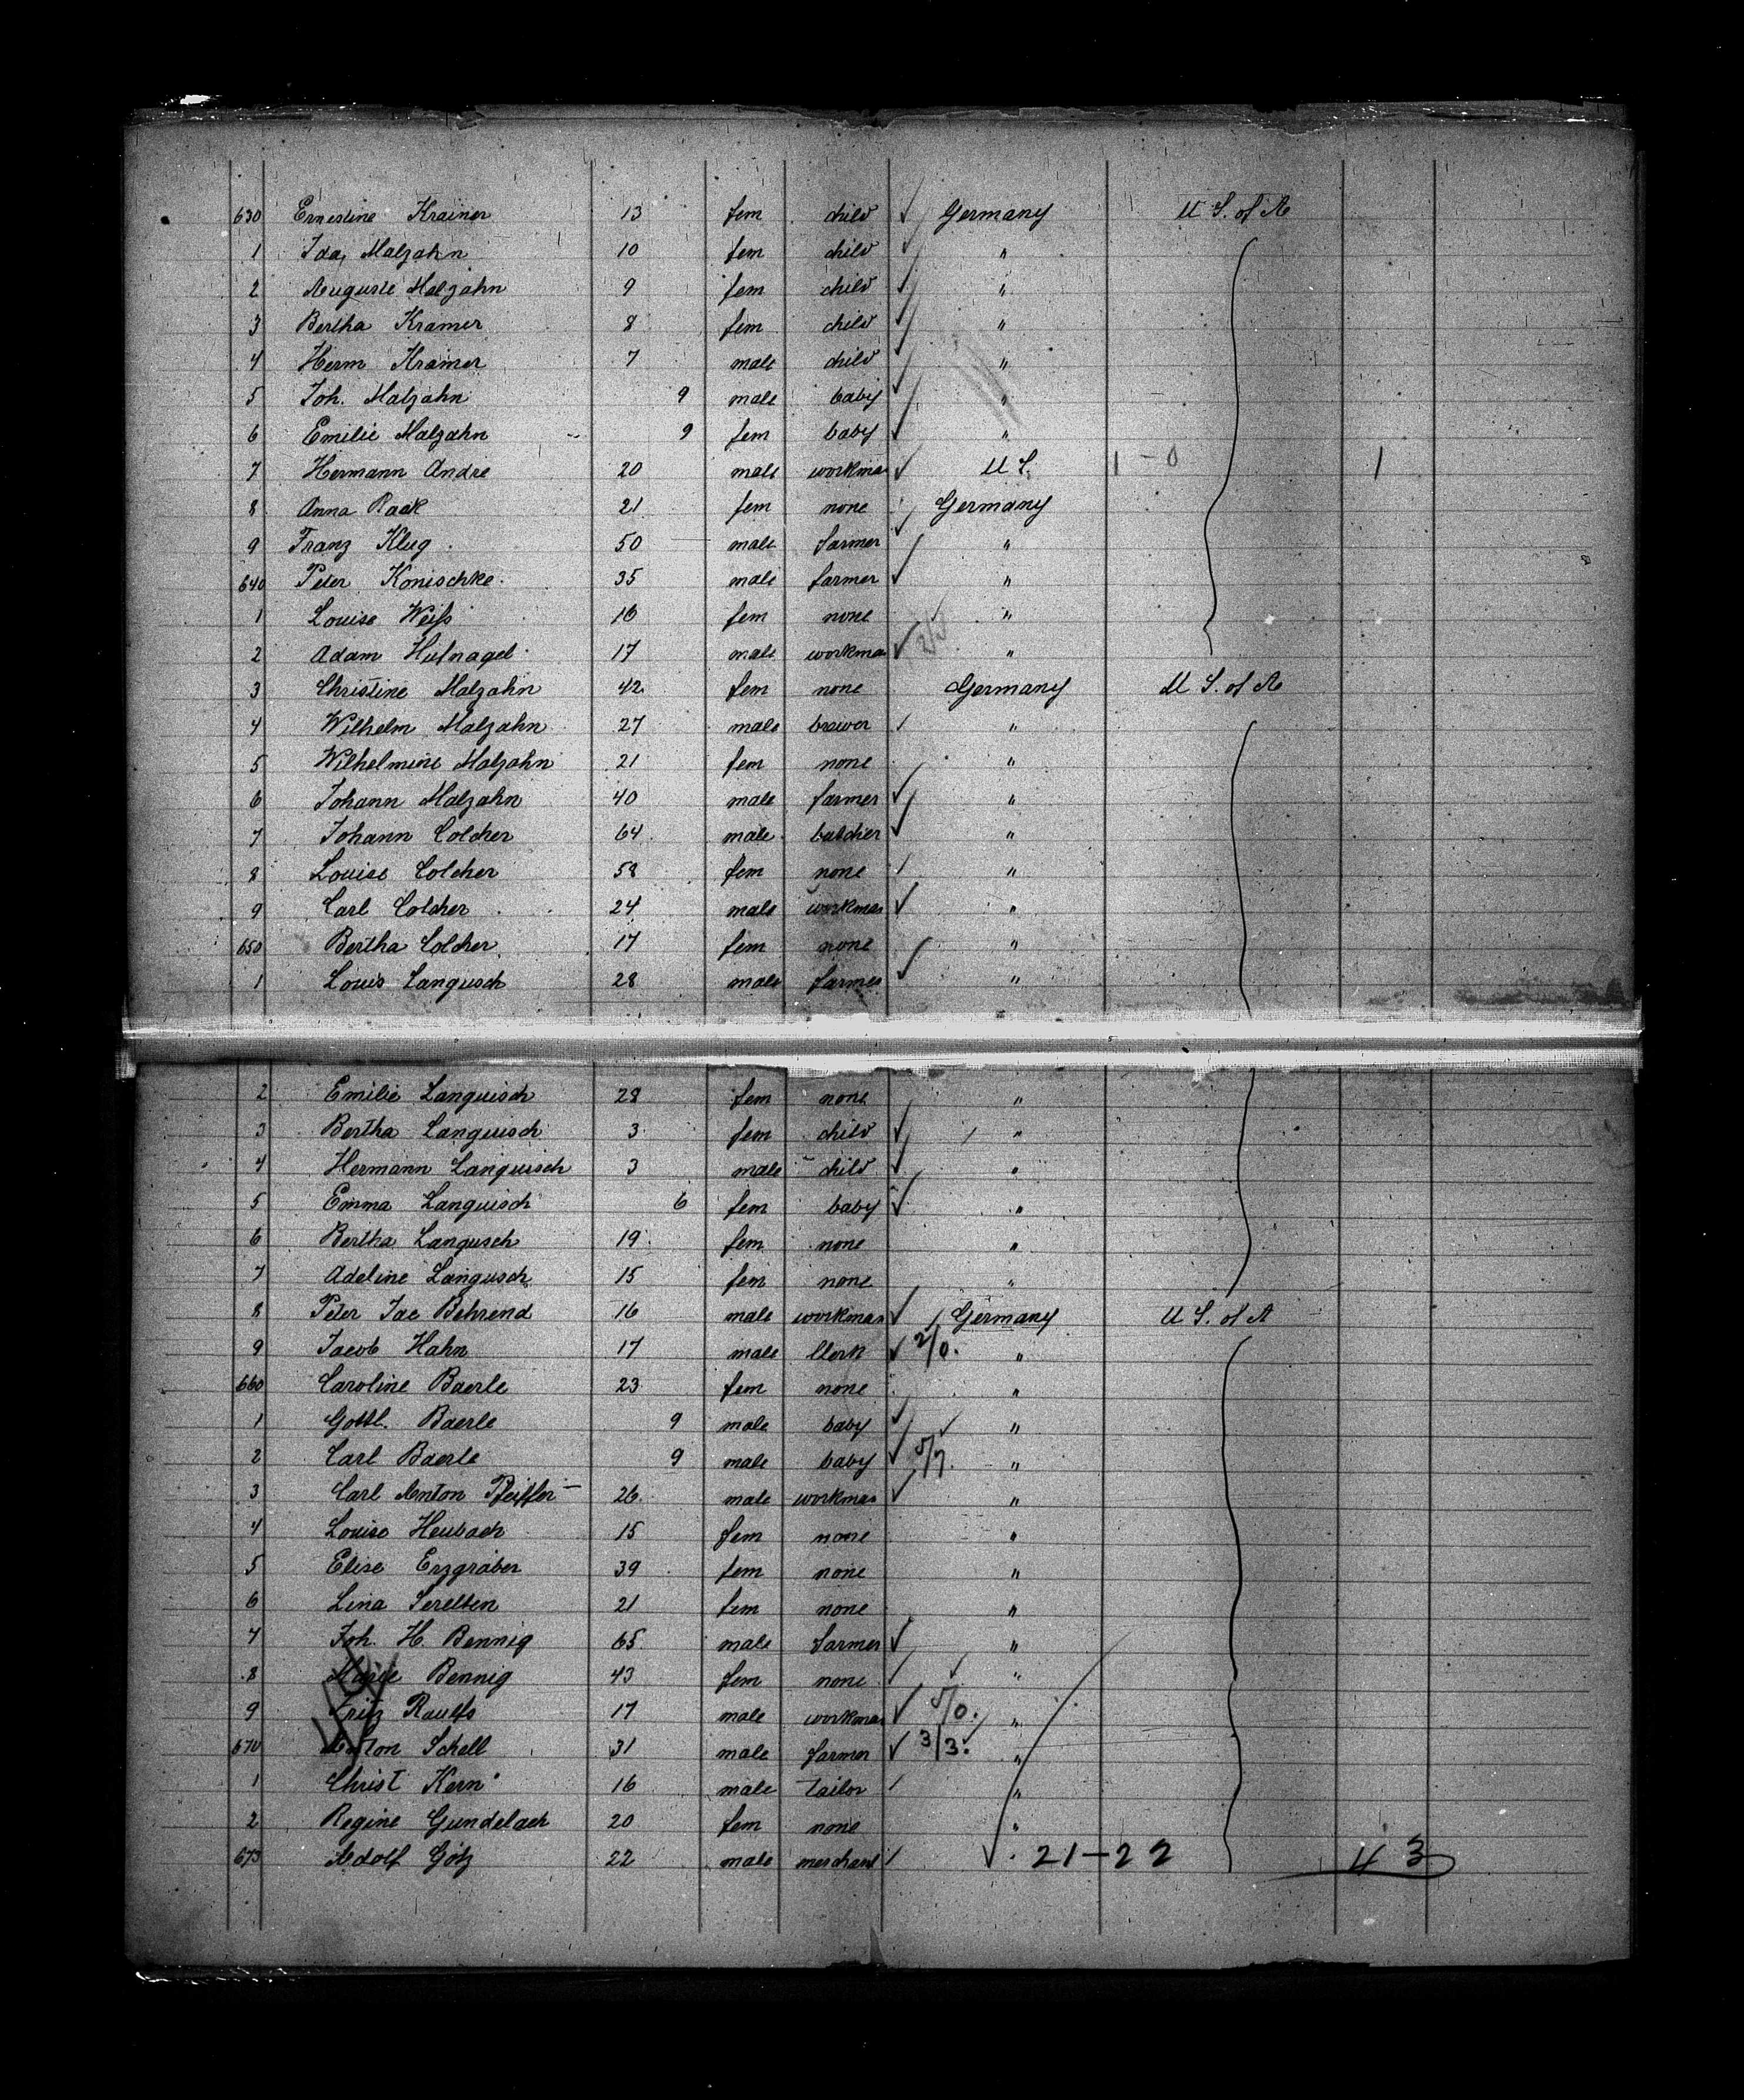 630 Ernestine Kramer 13 fem child Germany U S. of A
1 Ida Malzahn 10 fem child "
2 Auguste Malzahn 9 fem child "
3 Bertha Kramer 8 fem child "
4 Herm Kramer 7 male child "
5 Joh. Malzahn 9 male baby "
6 Emilie Malzahn 9 fem baby "
7 Hermann Andre 20 male workman U S. 1-0 1
8 Anna Raak 21 fem none Germany
9 Franz Klug 50 male farmer "
640 Peter Konischke 35 male farmer "
1 Louise Weiß 16 fem none "
2 Adam Hufnagel 17 male workman "
3 Christine Malzahn 42 fem none Germany U S. of A
4 Wilhelm Malzahn 27 male brewer "
5 Wilhelmine Malzahn 21 fem none "
6 Johann Malzahn 40 male farmer "
7 Johann Colcher 64 male butcher "
8 Louise Colcher 58 fem none "
9 Carl Colcher 24 male workman "
650 Bertha Colcher 17 fem none "
1 Louis Langusch 28 male farmer "
2 Emilie Languisch 28 fem none "
3 Bertha Languisch 3 fem child "
4 Hermann Languisch 3 male child "
5 Emma Languisch 6 fem baby "
6 Bertha Langusch 19 fem none "
7 Adeline Langusch 15 fem none "
8 Peter Jac Behrend 16 male workman Germany U S. of A
9 Jacob Hahn 17 male Clerk 2/0. "
660 Caroline Baerle 23 fem none "
1 Gottl. Baerle 9 male baby "
2 Carl Baerle 9 male baby 5/7. "
3 Carl Anton Pfeiffer 26 male workman "
4 Louise Heubach 15 fem none "
5 Elise Erzgräber 39 fem none "
6 Lina 21 fem none "
7 Joh. H. Bennig 65 male farmer "
8 Marie Bennig 43 fem none "
9 Fritz Raulfs 17 male workman 5/0. "
670 Anton Schell 31 male farmer 3/3. "
1 Christ Kern 16 male tailor "
2 Regine Gundelach 20 fem none "
673 Adolf Götz 22 male merchant 21-22 43